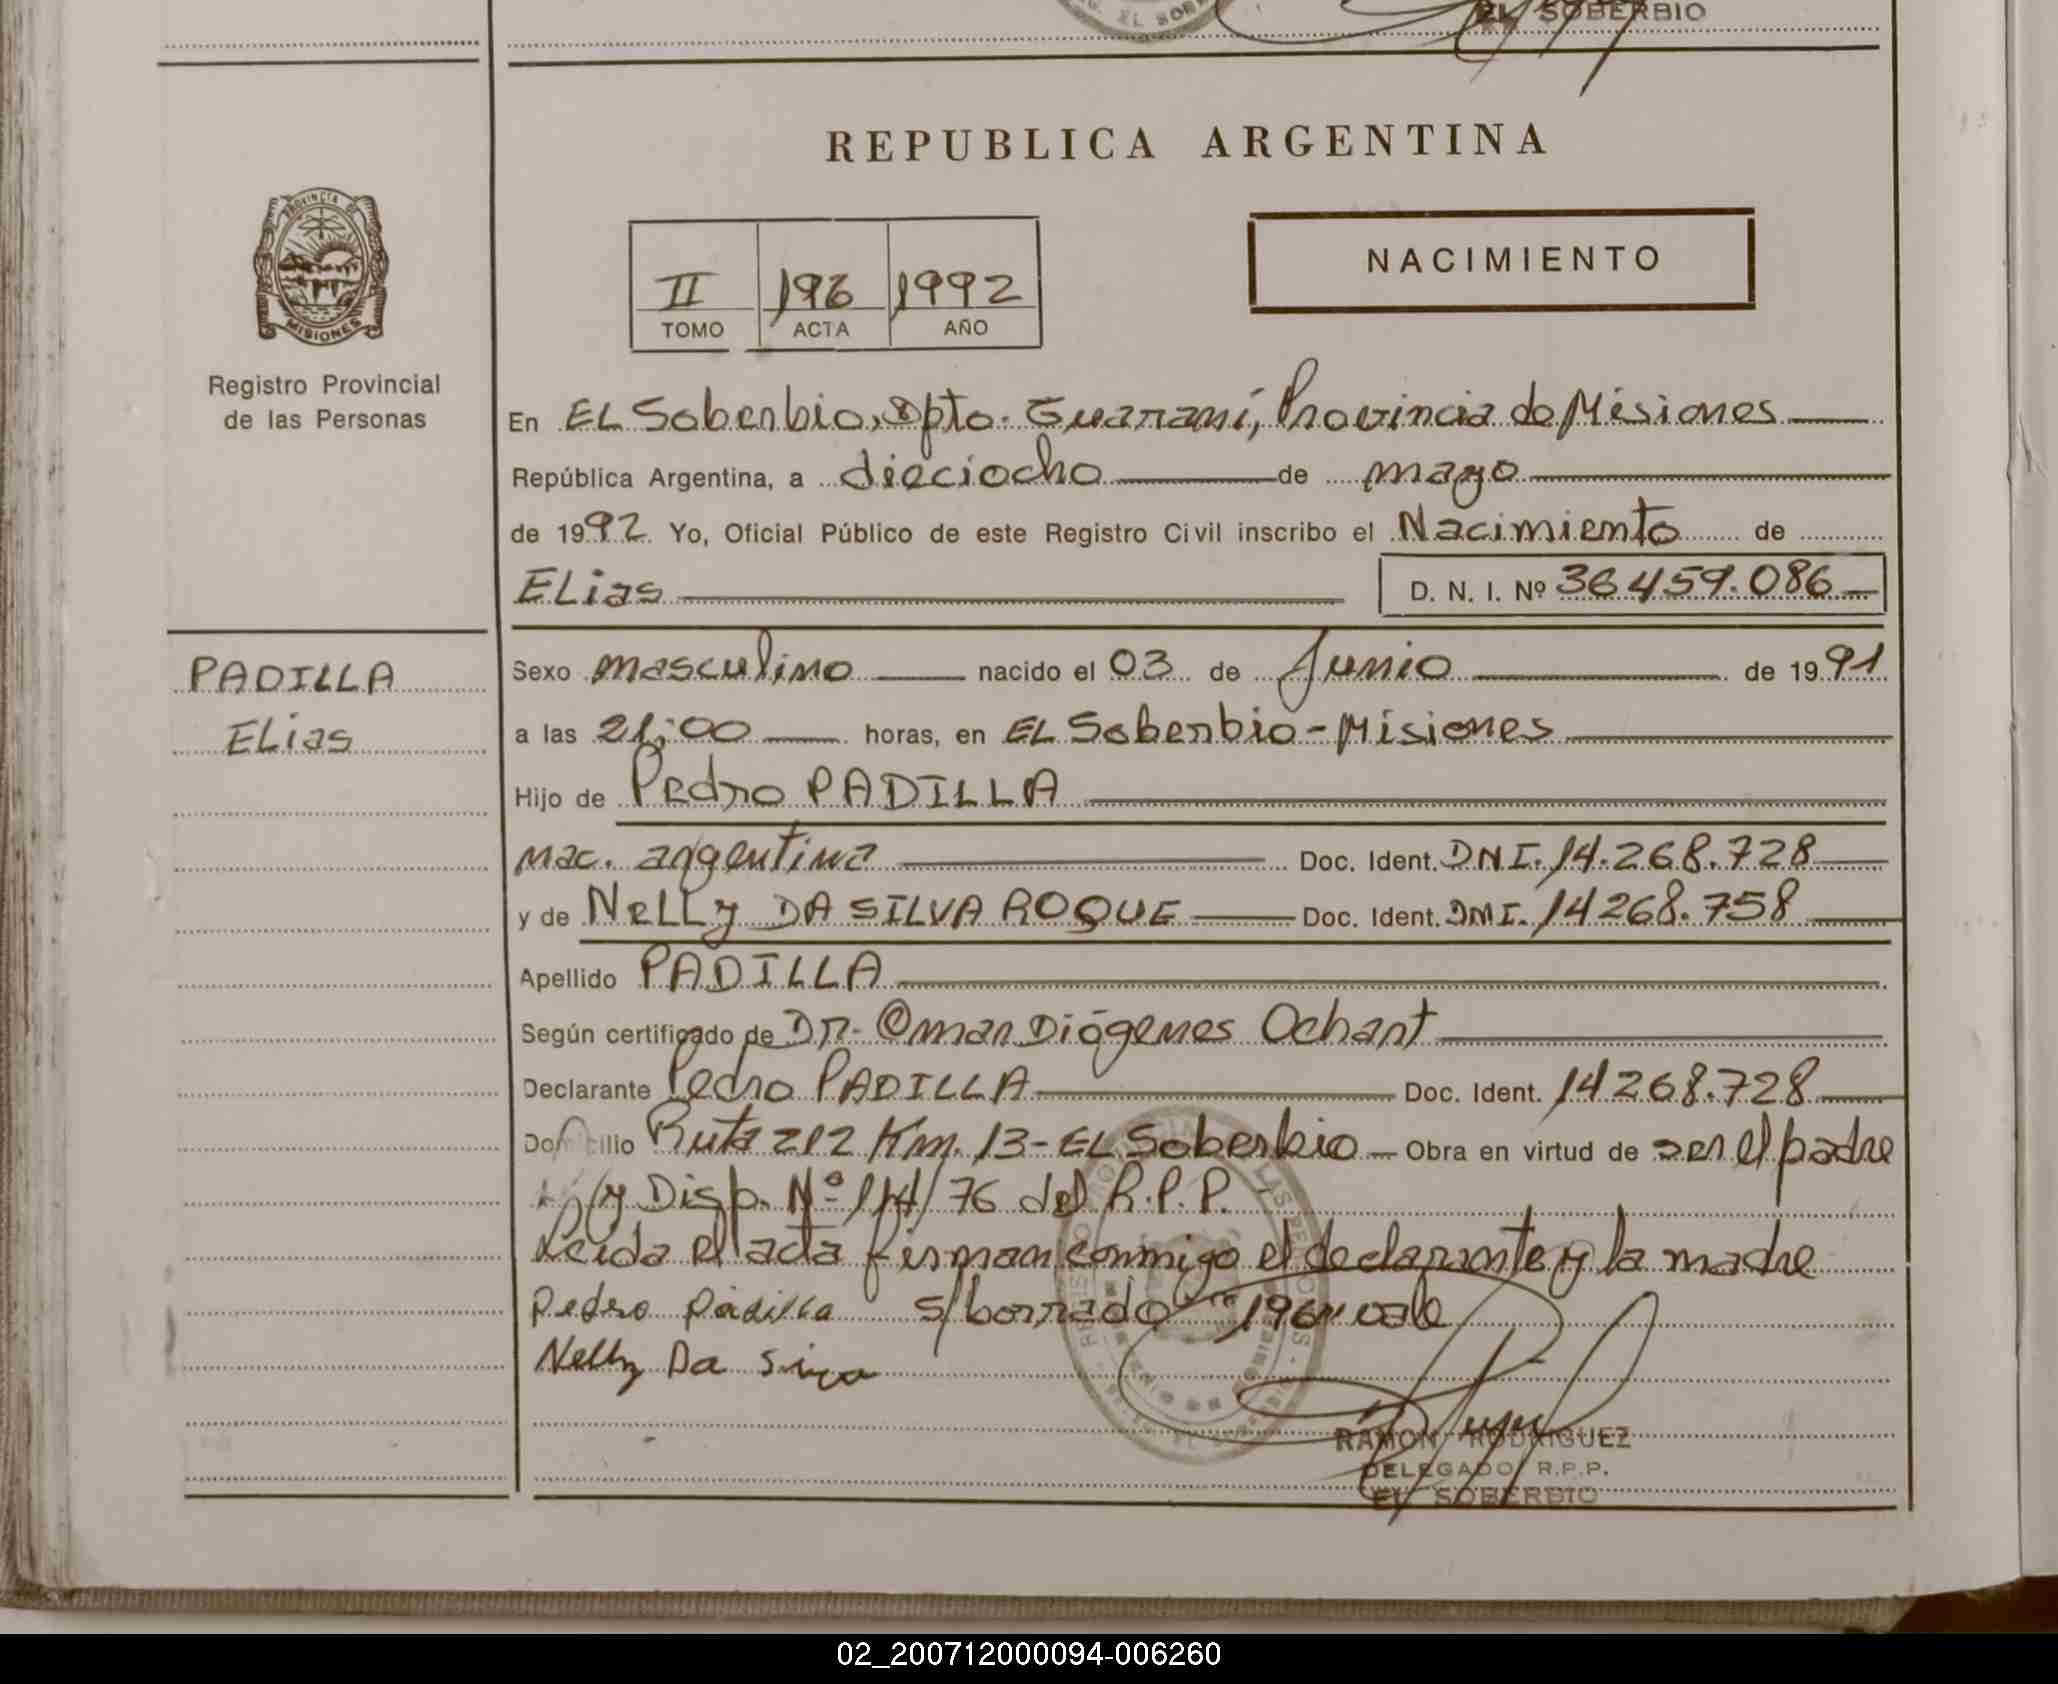 EL SOBERBIO
REPUBLICA ARGENTINA
PROVINCIA DE
MISIONES
Registro Provincial
de las Personas
II 196 1992
TOMO ACTA AÑO
NACIMIENTO
En EL Soberbio, Dpto. Guaraní, Provincia de Misiones
República Argentina, a dieciocho de mayo
de 1992 Yo, Oficial Público de este Registro Civil inscribo el Nacimiento de
ELias D. N. I. Nº 36459.086
PADILLA
ELias
Sexo masculino nacido el 03 de Junio de 1991
a las 21:00 horas, en EL Soberbio-Misiones
Hijo de Pedro PADILLA
nac. argentina Doc. Ident. DNI. 14.268.728
y de NeLLy DA SILVA ROQUE Doc. Ident. DNI. 14268.758
Apellido PADILLA
Según certificado de Dr. Omar Diógenes Ochant
Declarante Pedro PADILLA Doc. Ident. 14268.728
Domicilio Ruta 212 Km. 13 - EL Soberbio - Obra en virtud de ser el padre
y Disp. Nº 114/76 del R.P.P. -
Leida el acta firman conmigo el declarante y la madre
Pedro Padilla s/borrado "196" vale
Nelly Da Silva
RAMON RODRIGUEZ
DELEGADO R.P.P.
EL SOBERBIO
02_200712000094-006260